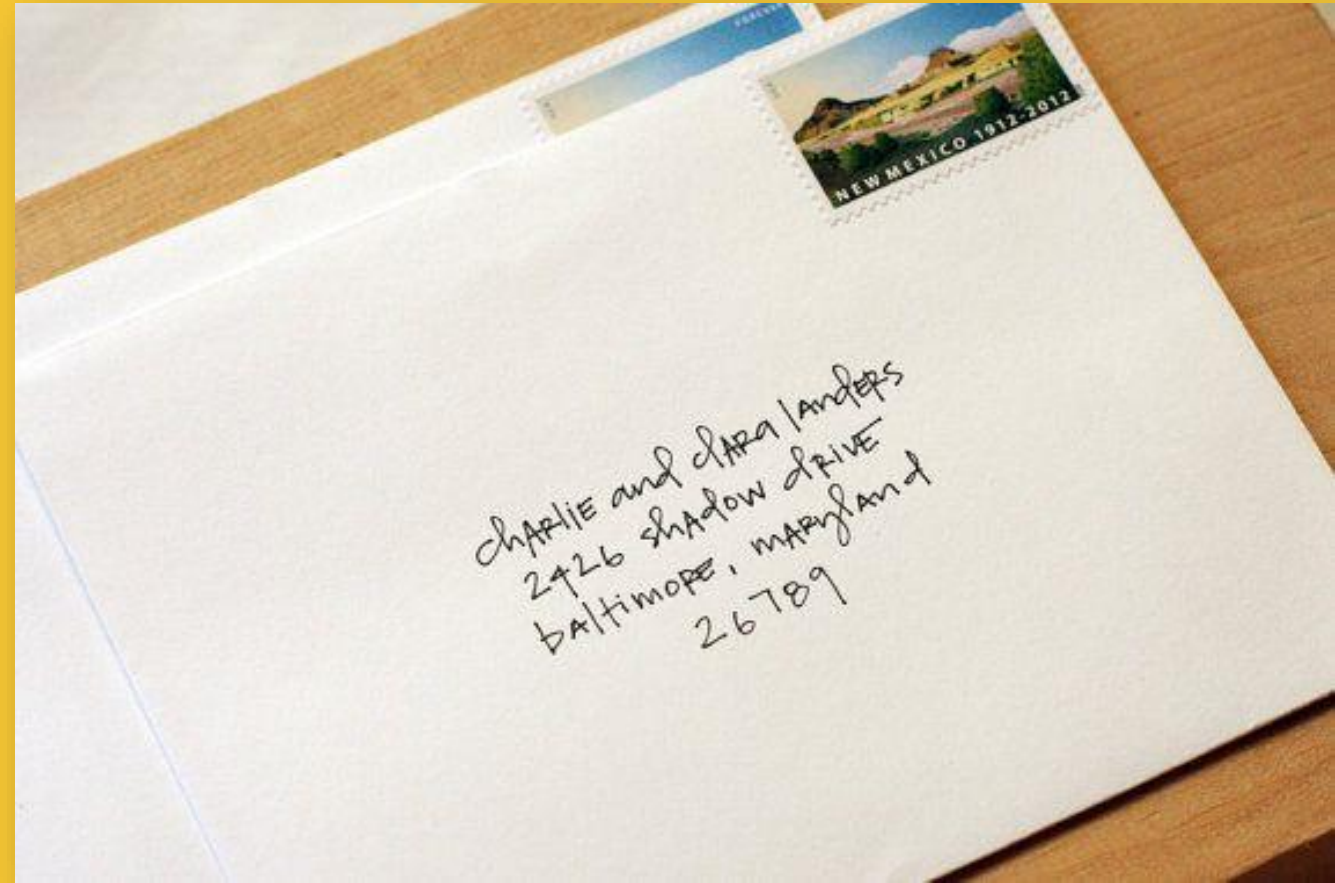 FOREVER
NEW MEXICO 1912-2012
chARlIE and clARa lAndERS
2426 shAdow dRIVE
bAltimoRE, mARylAnd
26789